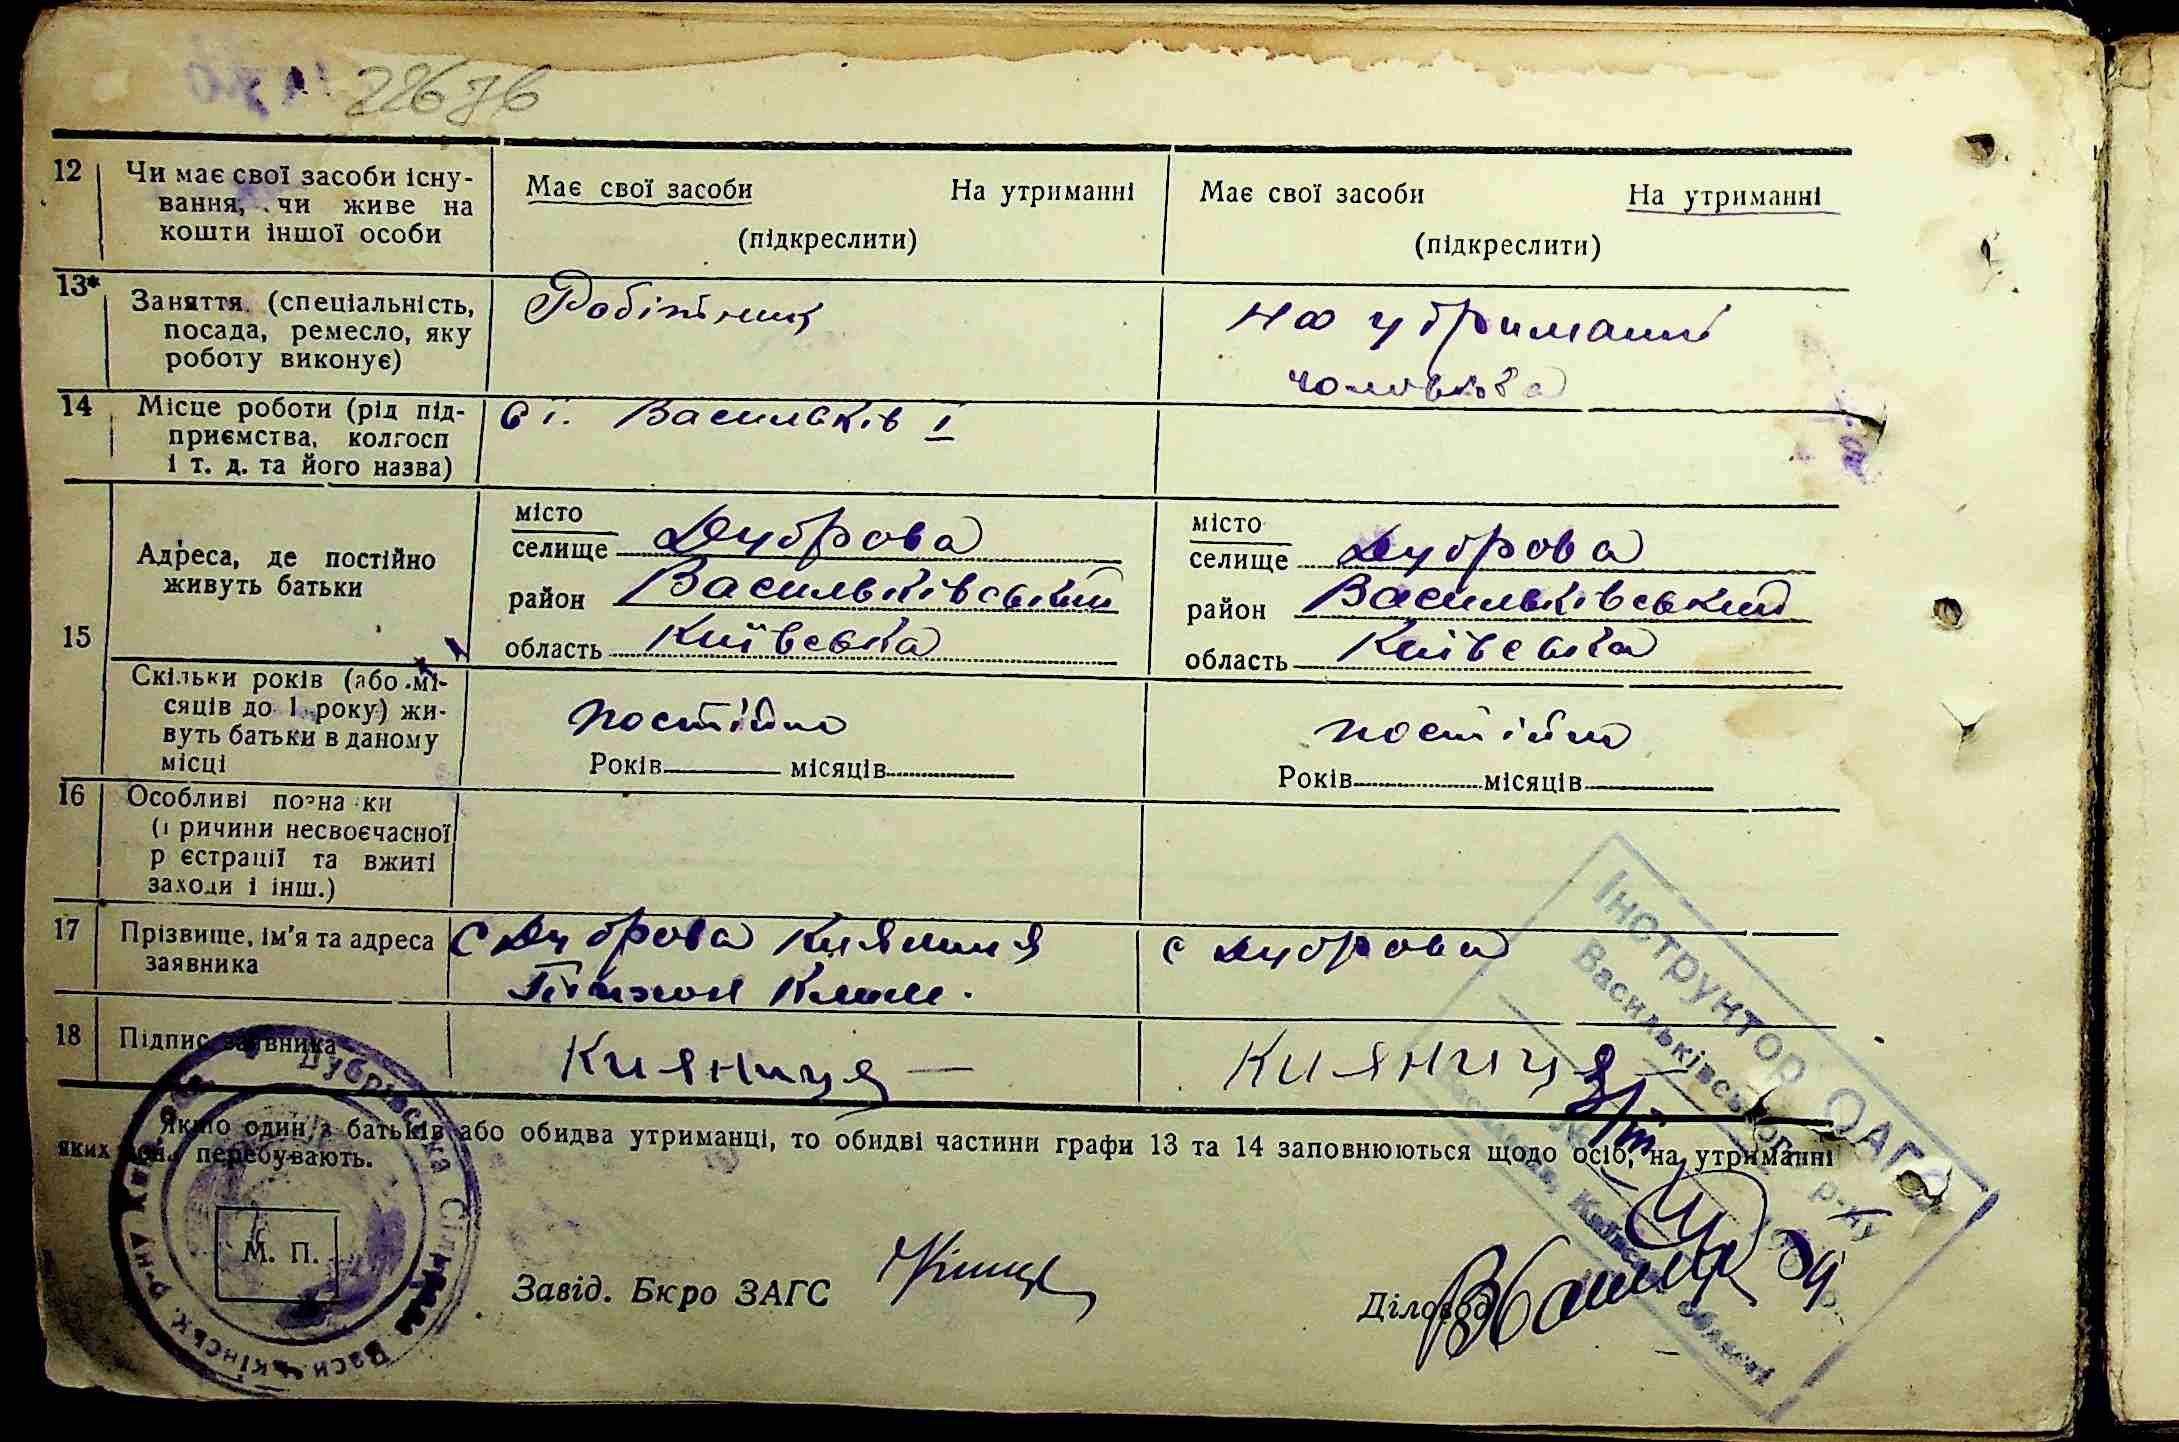 22676
12 Чи має свої засоби існу-
вання, чи живе на
кошти іншої особи
Має свої засоби На утриманні
(підкреслити)
Має свої засоби На утриманні
(підкреслити)
13* Заняття (спеціальність,
посада, ремесло, яку
роботу виконує)
Робітник
на утриманні
чоловіка
14 Місце роботи (рід під-
приємства, колгосп
і т. д. та його назва)
Васильків І
15
Адреса, де постійно
живуть батьки
місто
селище Дуброва
район Васильківський
область Київська
місто
селище Дуброва
район Васильківський
область Київська
Скільки років (або мі-
сяців до 1 року) жи-
вуть батьки в даному
місці
постійно
Років місяців
постійно
Років місяців
16 Особливі познаки
(причини несвоєчасної
реєстрації та вжиті
заходи і інш.)
17 Прізвище, ім'я та адреса
заявника
с Дуброва Кияниця
Клим.
с Дуброва
18 Підпис заявника
Кияниця
Кияниця
Якщо один з батьків або обидва утриманці, то обидві частини графи 13 та 14 заповнюються щодо осіб, на утриманні
яких вони перебувають.
М. П.
Завід. Бюро ЗАГС
Діловод
Дубрівська Сільрада Васильківськ. р-ну
Інструктор
Васильківського р-ну
області